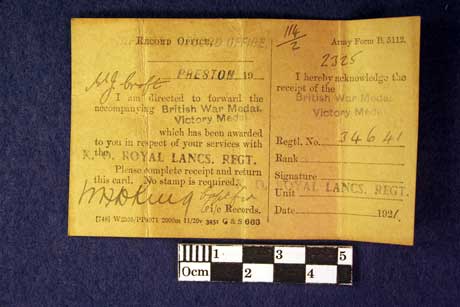 RECORD OFFICE,
PRESTON 19
M J Croft
I am directed to forward the
accompanying British War Medal
Victory Medal
which has been awarded
to you in respect of your services with
the K. O. ROYAL LANCS. REGT.
Please complete receipt and return
this card. No stamp is required.
i/c Records.
[748] W2505/PP4071 2000m 11/20v 3451 G & S 663
114/2
Army Form B. 5112.
2325
I hereby acknowledge the
receipt of the
British War Medal
Victory Medal
Regtl. No. 34641
Rank
Signature
Unit K. O. ROYAL LANCS. REGT.
Date 1921.
0cm 1 2 3 4 5